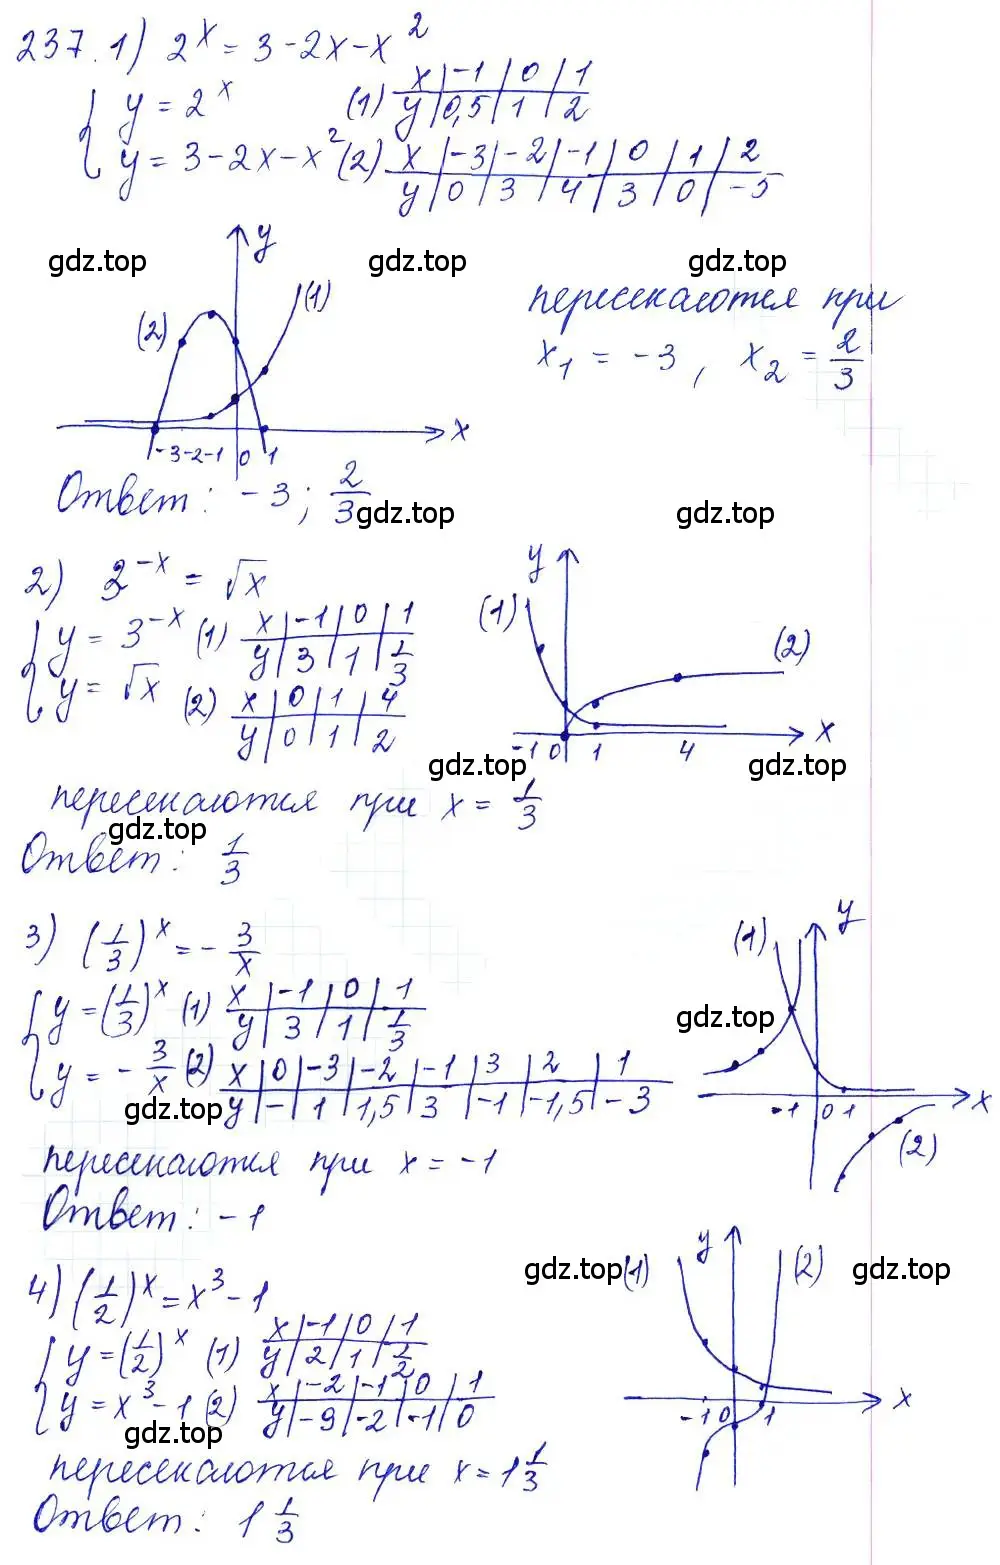 237. 1) 2^x = 3 - 2x - x^2
{ y = 2^x (1) x | -1 | 0 | 1
y | 0,5 | 1 | 2
y = 3 - 2x - x^2 (2) x | -3 | -2 | -1 | 0 | 1 | 2
y | 0 | 3 | 4 | 3 | 0 | -5
y
gdz.top gdz.top gdz.top
(2) (1)
пересекаются при
x₁ = -3, x₂ = 2/3
-3 -2 -1 0 1 x
Ответ: -3; 2/3
gdz.top gdz.top
2) 3^-x = √x
{ y = 3^-x (1) x | -1 | 0 | 1
y | 3 | 1 | 1/3
y = √x (2) x | 0 | 1 | 4
y | 0 | 1 | 2
y
(1) (2)
-1 0 1 4 x
gdz.top gdz.top
пересекаются при x = 1/3
gdz.top
Ответ: 1/3
3) (1/3)^x = -3/x
{ y = (1/3)^x (1) x | -1 | 0 | 1
y | 3 | 1 | 1/3
y = -3/x (2) x | 0 | -3 | -2 | -1 | 3 | 2 | 1
y | - | 1 | 1,5 | 3 | -1 | -1,5 | -3
y
(1)
gdz.top
-1 0 1 x
(2)
gdz.top
пересекаются при x = -1
Ответ: -1
4) (1/2)^x = x^3 - 1
{ y = (1/2)^x (1) x | -1 | 0 | 1
y | 2 | 1 | 1/2
y = x^3 - 1 (2) x | -2 | -1 | 0 | 1
y | -9 | -2 | -1 | 0
y
gdz.top (1) (2) gdz.top
-1 0 1 x
gdz.top
пересекаются при x = 1 1/3
Ответ: 1 1/3